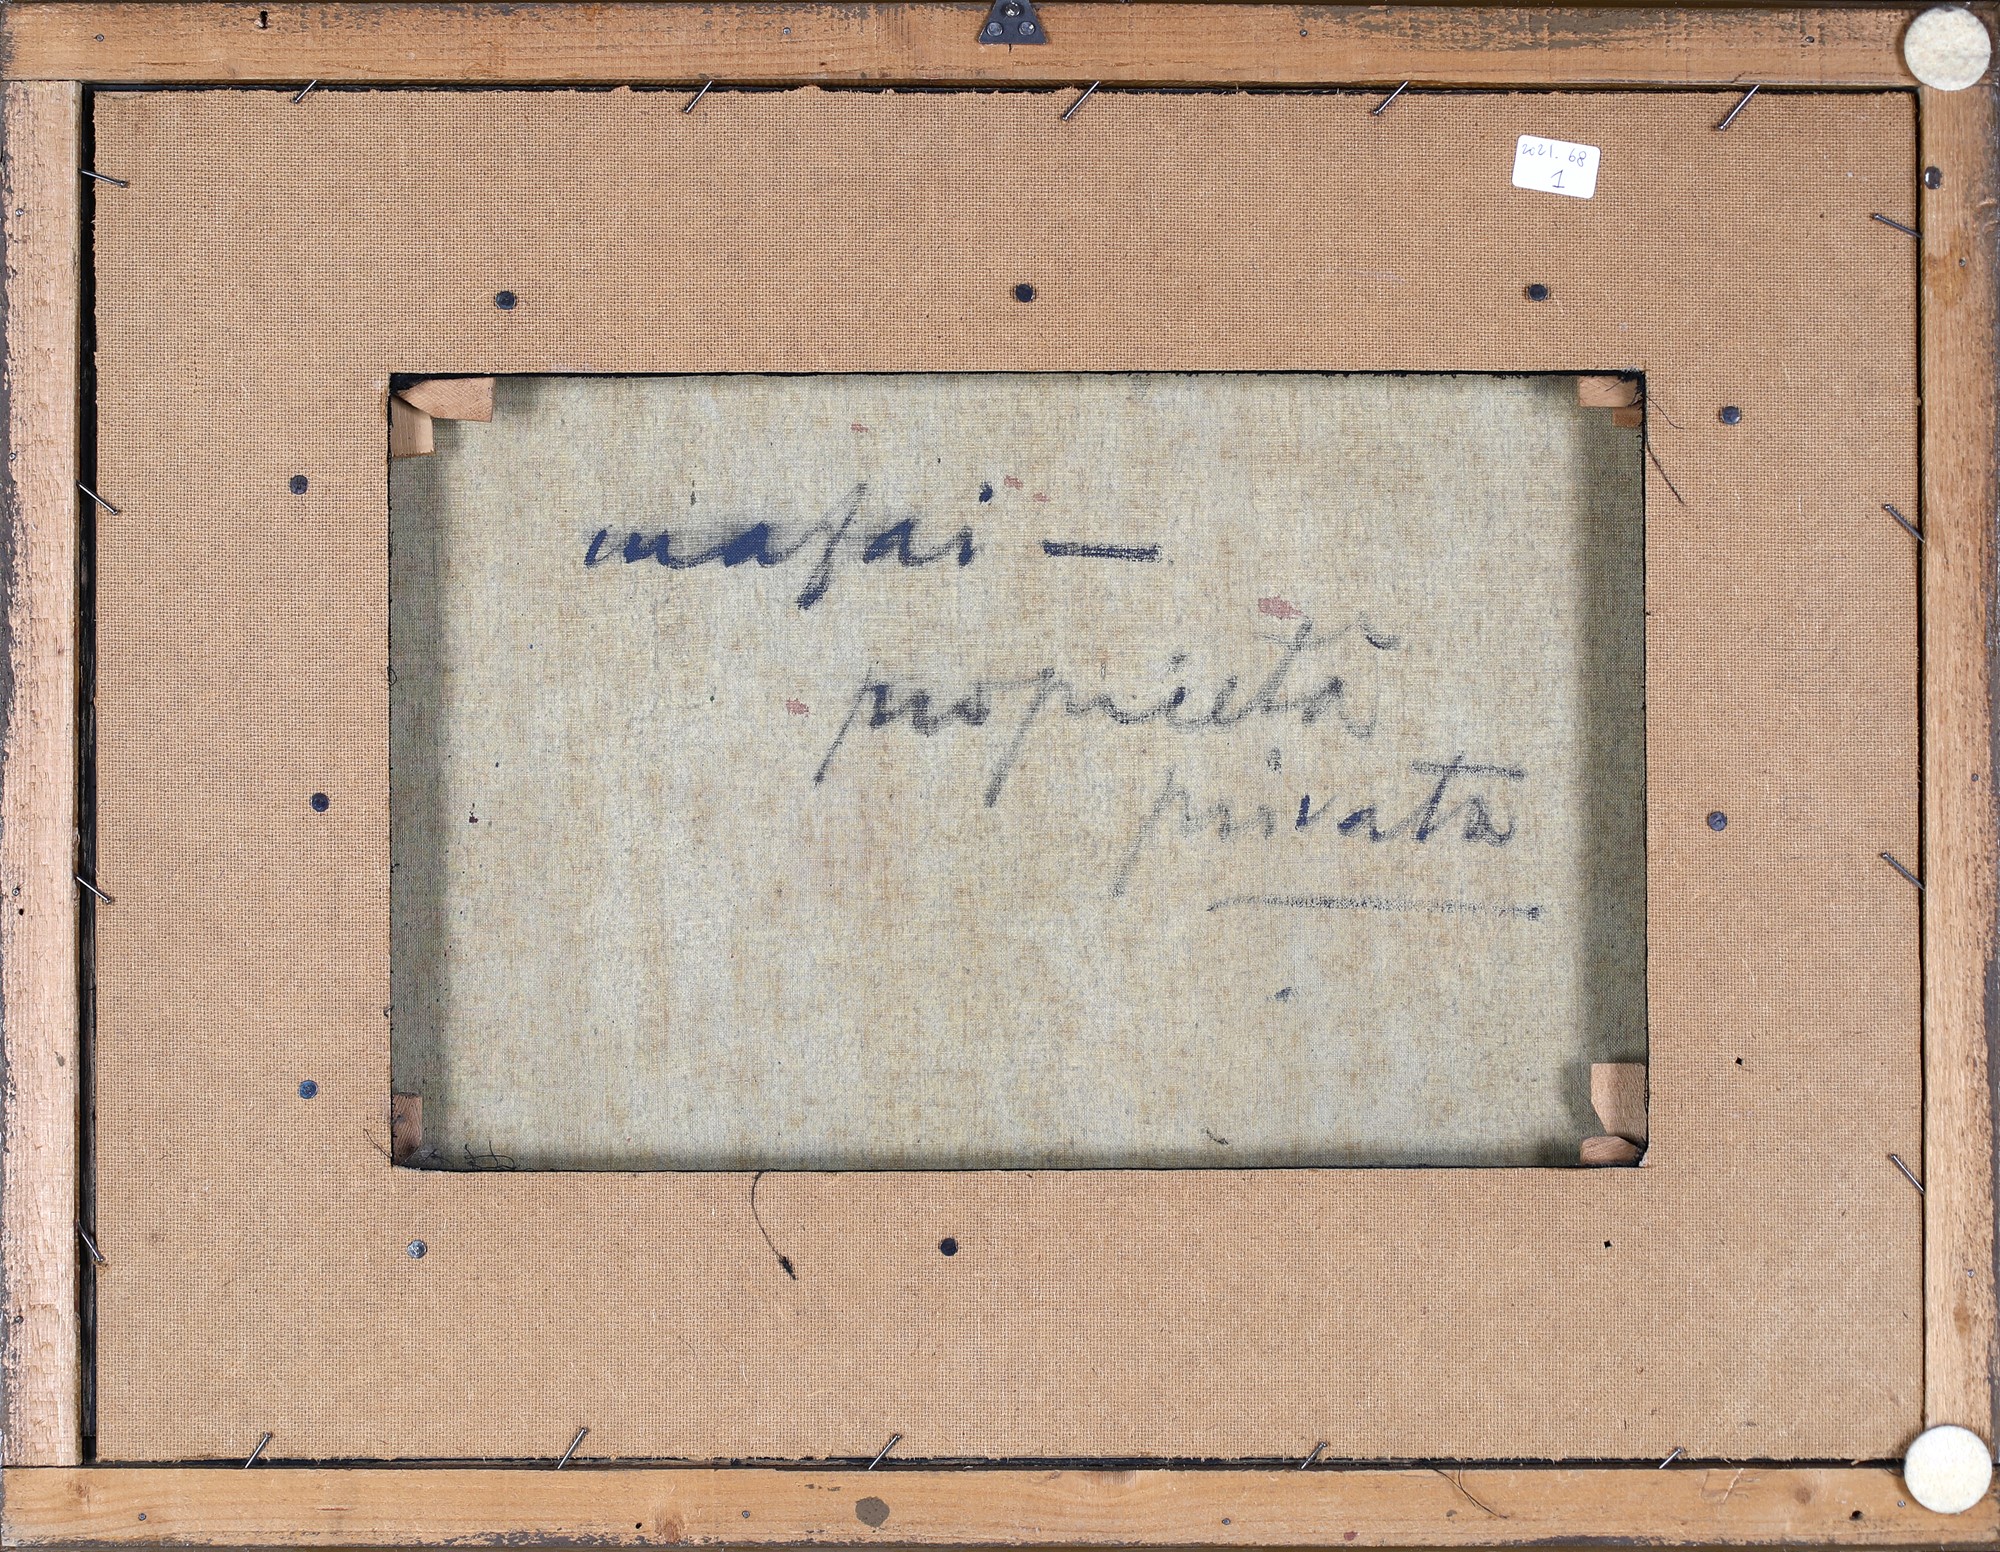 2021. 68
1
mafai —
proprietà
privata